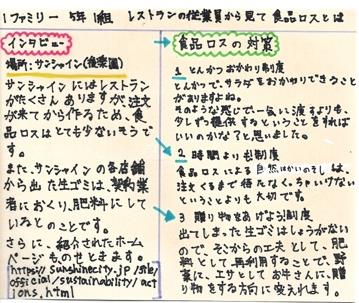 1ファミリー 5年1組 レストランの従業員から見て食品ロスとは
インタビュー
場所:サンシャイン(後楽園)
サンシャインにはレストラン
がたくさんありますが、注文
が来てから作るため、食
品ロスはとても少ないそうで
す。
また、サンシャインの各店舗
から出た生ゴミは、契約業
者におくり、肥料にして
いるとのことです。
さらに、紹介されたホーム
ページものせときます。
https://sunshinecity.jp/
official/sustainability/act
ions.html
食品ロスの対策
1 とんかつおかわり制度
とんかつで、サラダをおかわりできること
がありますよね。
そのような感じで一気に渡すよりも、
少しずつ提供するということをすれば
いいのかなと思いました。
2 時間より
食品ロスによる
は、
注文くるまで待たなく、ちゃいけない
というよりも大切です。
3 贈り物をあげよう制度
出てしまった生ゴミはしょうがない
ので、そこからの工夫として、肥
料として再利用することで、野
菜に、エサとしてお牛さんに、贈
り物をする方向に変えれます。